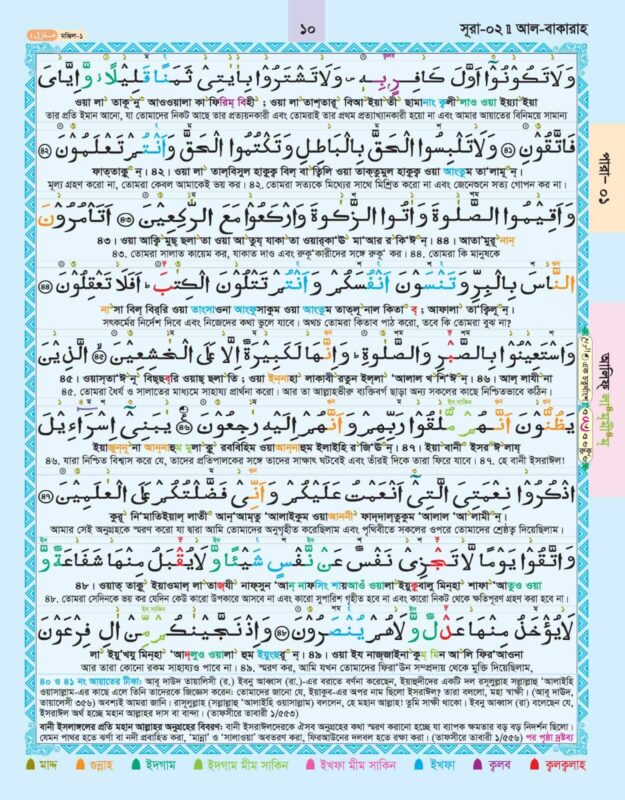 মঞ্জিল-১ ১০ সূরা-০২ঃ আল-বাকারাহ
وَلَا تَكُوْنُوْٓا اَوَّلَ كَافِرٍۢ بِهٖ ۪ وَلَا تَشْتَرُوْا بِاٰيٰتِيْ ثَمَنًا قَلِيْلًا ۫ وَّ اِيَّايَ
ওয়া লা তাকূনূ আওওয়ালা কাফিরিম্ বিহী ; ওয়া লা তাশ্তারূ বিআ ইয়াতী ছামানাং ক্বলীলাও ওয়া ইয়্যা ইয়া
তার প্রতি ইমান আনো, যা তোমাদের নিকট আছে তার প্রত্যয়নকারী এবং তোমরাই তার প্রথম প্রত্যাখ্যানকারী হয়ো না এবং আমার আয়াতের বিনিময়ে সামান্য
فَاتَّقُوْنِ ۝٤١ وَلَا تَلْبِسُوا الْحَقَّ بِالْبَاطِلِ وَتَكْتُمُوا الْحَقَّ وَاَنْتُمْ تَعْلَمُوْنَ ۝٤٢
ফাত্তাকূন্। ৪২। ওয়া লা তাল্বিসুল হাক্বক্ব বিল্ বা ত্বিলি ওয়া তাক্তুমুল হাক্বক্ব ওয়া আংতুম তা'লামূন্।
মূল্য গ্রহণ করো না, তোমরা কেবল আমাকেই ভয় কর। ৪২. তোমরা সত্যকে মিথ্যের সাথে মিশ্রিত করো না এবং জেনেশুনে সত্য গোপন কর না।
وَاَقِيْمُوا الصَّلٰوةَ وَاٰتُوا الزَّكٰوةَ وَارْكَعُوْا مَعَ الرّٰكِعِيْنَ ۝٤٣ اَتَاْمُرُوْنَ
৪৩। ওয়া আক্বিমুছ্ ছলা তা ওয়া আ তুয্ যাকা তা ওয়ার্‌কা'ঊ মা'আর র কি'ঈন্। ৪৪। আতা'মুরূনান্
৪৩. তোমরা সালাত কায়েম কর, যাকাত দাও এবং রুকূ'কারীদের সঙ্গে রুকূ' কর। ৪৪. তোমরা কি মানুষকে
النَّاسَ بِالْبِرِّ وَتَنْسَوْنَ اَنْفُسَكُمْ وَاَنْتُمْ تَتْلُوْنَ الْكِتٰبَ ؕ اَفَلَا تَعْقِلُوْنَ ۝٤٤
না সা বিল্ বির্‌রি ওয়া তাংসাওনা আংফুসাকুম ওয়া আংতুম তাত্লূ নাল কিতা ব্ ; আফালা তা'ক্বিলূন্।
সৎকর্মের নির্দেশ দিবে এবং নিজেদের কথা ভুলে যাবে। অথচ তোমরা কিতাব পাঠ করো, তবে কি তোমরা বুঝ না?
وَاسْتَعِيْنُوْا بِالصَّبْرِ وَالصَّلٰوةِ ؕ وَاِنَّهَا لَكَبِيْرَةٌ اِلَّا عَلَى الْخٰشِعِيْنَ ۝٤٥ الَّذِيْنَ
৪৫। ওয়াসতা'ঈ নূ বিছ্ছব্‌রি ওয়াছ্ ছলা তি ; ওয়া ইন্নাহা লাকাবী রতুন ইল্লা 'আলাল খ শি'ঈ ন্। ৪৬। আল্ লাযী না
৪৫. তোমরা ধৈর্য ও সালাতের মাধ্যমে সাহায্য প্রার্থনা করো। আর তা আল্লাহভীরু ব্যক্তিবর্গ ছাড়া অন্য সকলের কাছে নিশ্চিতভাবে কঠিন।
يَظُنُّوْنَ اَنَّهُمْ مُّلٰقُوْا رَبِّهِمْ وَاَنَّهُمْ اِلَيْهِ رٰجِعُوْنَ ۝٤٦ يٰبَنِيْٓ اِسْرَآءِيْلَ
ইয়াজুন্নূ না আন্নাহুম মুলা কূ রব্বিহিম ওয়া আন্নাহুম ইলাইহি র জি'ঊ ন্। ৪৭। ইয়া বানী ইসর ঈ লায্
৪৬. যারা নিশ্চিত বিশ্বাস করে যে, তাদের প্রতিপালকের সঙ্গে তাদের সাক্ষাৎ ঘটবেই এবং তাঁরই দিকে তারা ফিরে যাবে। ৪৭. হে বানী ইসরাঈল!
اذْكُرُوْا نِعْمَتِيَ الَّتِيْٓ اَنْعَمْتُ عَلَيْكُمْ وَاَنِّيْ فَضَّلْتُكُمْ عَلَى الْعٰلَمِيْنَ ۝٤٧
কুরূ নি'মাতিইয়াল্ লাতী আন্'আম্তু 'আলাইকুম ওয়াআননী ফাদ্দালতুকুম 'আলাল 'আ লামীন্।
আমার সেই অনুগ্রহকে স্মরণ করো যা দ্বারা আমি তোমাদের অনুগৃহীত করেছিলাম এবং পৃথিবীতে সকলের ওপরে তোমাদের শ্রেষ্ঠত্ব দিয়েছিলাম।
وَاتَّقُوْا يَوْمًا لَّا تَجْزِيْ نَفْسٌ عَنْ نَّفْسٍ شَيْـًٔا وَّلَا يُقْبَلُ مِنْهَا شَفَاعَةٌ وَّ
৪৮। ওয়াত্ তাকূ ইয়াওমাল্ লা তাজ্যী নাফ্সুন 'আন্ নাফসিং শায়আঁও ওয়ালা ইয়ুক্ববালু মিন্হা শাফা 'আতুও ওয়া
৪৮. তোমরা সেদিনকে ভয় কর যেদিন কেউ কারো উপকারে আসবে না এবং কারো সুপারিশ গৃহীত হবে না এবং কারো নিকট থেকে ক্ষতিপূরণ গ্রহণ করা হবে না।
لَا يُؤْخَذُ مِنْهَا عَدْلٌ وَّلَا هُمْ يُنْصَرُوْنَ ۝٤٨ وَاِذْ نَجَّيْنٰكُمْ مِّنْ اٰلِ فِرْعَوْنَ
লা ইয়ু'খযু মিন্হা 'আদ্লুও ওয়ালা হুম ইয়ুংছরূন্। ৪৯। ওয়া ইয নাজ্জাইনা কুম্ মিন আ লি ফির'আওনা
আর তারা কোনো রকম সাহায্যও পাবে না। ৪৯. স্মরণ কর, আমি যখন তোমাদের ফিরা'উন সম্প্রদায় থেকে মুক্তি দিয়েছিলাম,
৪০ ও ৪১ নং আয়াতের টীকা: আবু দাউদ তায়ালিসী (র.) ইবনু আব্বাস (রা.)-এর বরাতে বর্ণনা করেছেন, ইয়াহুদীদের একটি দল রসূলুল্লাহ সল্লাল্লাহু 'আলাইহি
ওয়াসাল্লাম-এর কাছে এলে তিনি তাদেরকে জিজ্ঞেস করেন: তোমাদের জানা যে, ইয়াকুব-এর অপর নাম ছিলো ইসরাঈল? তারা বললো, মহা স্বাক্ষী। (আবূ দাউদ,
তায়ালেসী ৩৫৬) অবশ্যই আমরা জানি। রাসূলুল্লাহ (সল্লাল্লাহু 'আলাইহি ওয়াসাল্লাম) বললেন, হে মহান আল্লাহ! তুমি সাক্ষী থাকো। ইবনু আব্বাস (রা) বলেছেন যে,
ইসরাঈল অর্থ হচ্ছে মহান আল্লাহর দাস বা বান্দা। (তাফসীরে তাবারী ১/৫৫৩)
বানী ইসরাঈলদের প্রতি মহান আল্লাহর অনুগ্রহের বিবরণ: বানী ইসরাঈলদেরকে ঐসব অনুগ্রহের কথা স্মরণ করানো হচ্ছে যা ব্যাপক ক্ষমতার বড় বড় নিদর্শন ছিলো।
যেমন পাথর হতে ঝর্ণা বা নদী প্রবাহিত করা, 'মান্না' ও 'সালাওয়া' অবতরণ করা, ফিরআউনের দলবল হতে রক্ষা করা। (তাফসীরে তাবারী ১/৫৫৬) পর পৃষ্ঠা দ্রষ্টব্য
মাদ্দ গুন্নাহ ইদগাম ইদগাম মীম সাকিন ইখফা মীম সাকিন ইখফা ক্বলব ক্বলক্বলাহ
পারা- ০১
আলিফ্ লা---ম্ মী---ম্